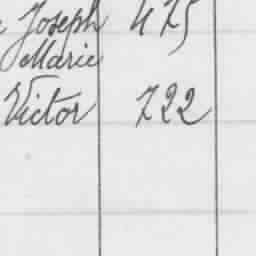 Joseph 475
Marie
Victor 722